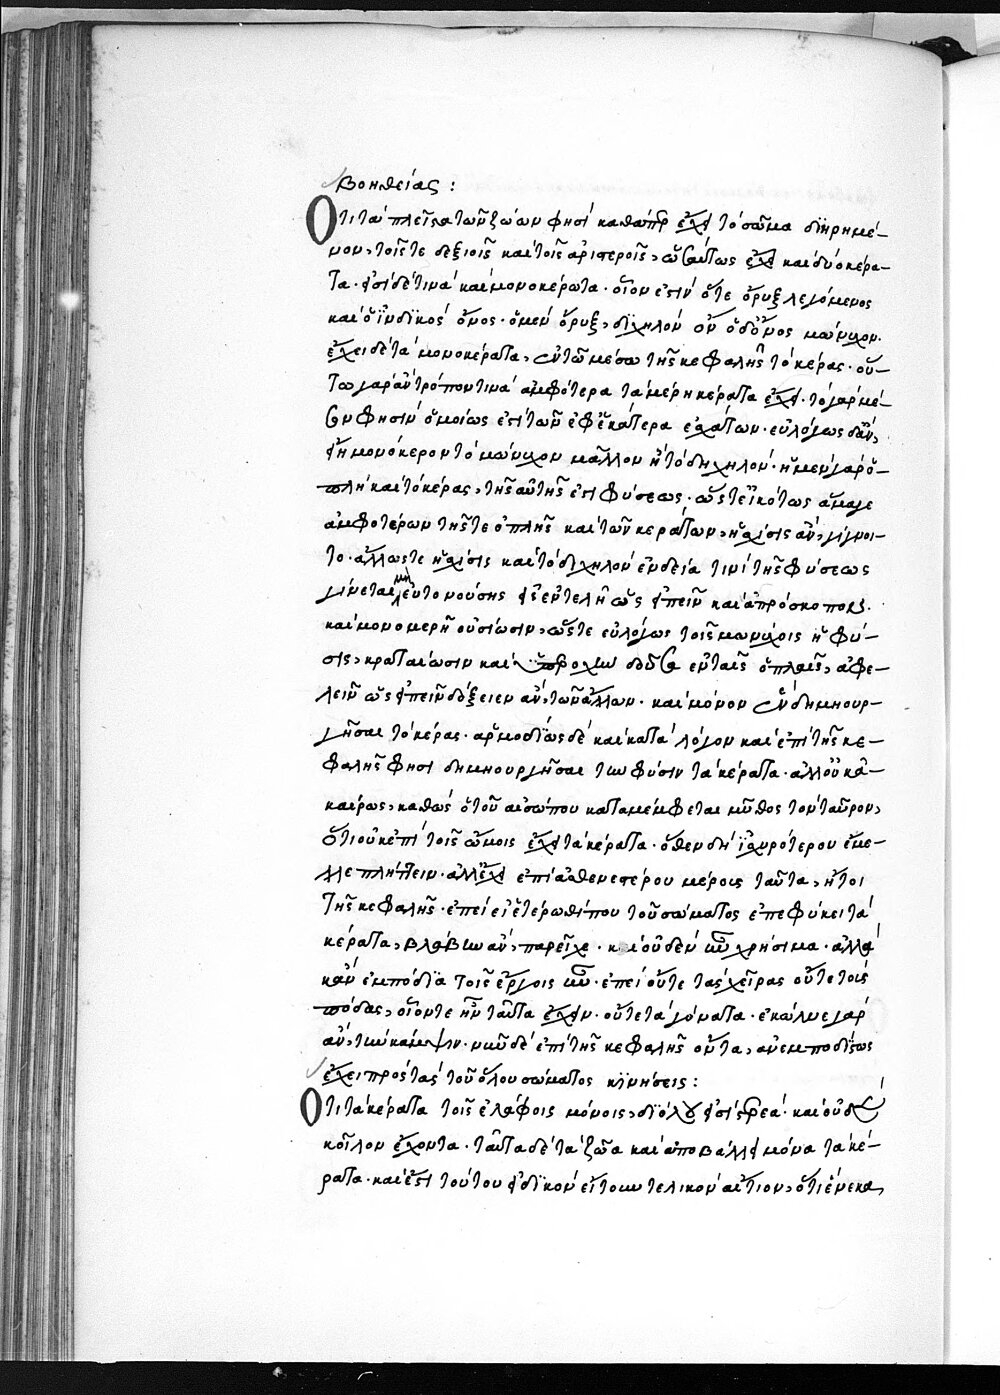 βοηθείας :
Ὅτι τὰ πλεῖστα τῶν ζώων φησὶ καθάπερ ἔχει τὸ σῶμα διῃρημέ-
νον, τοῖς τε δεξιοῖς καὶ τοῖς ἀριστεροῖς, οὕτως ἔχει καὶ δύο κέρα-
τα· εἰσὶ δέ τινα καὶ μονοκέρωτα· οἷον ἐστὶν ὅ τε ὄρυξ λεγόμενος
καὶ ὁ ἰνδικὸς ὄνος· ὁ μὲν ὄρυξ, διχηλὸν ὁ δ' ὄνος μώνυχον.
ἔχει δὲ τὰ μονοκέρατα, ἐν τῷ μέσῳ τῆς κεφαλῆς τὸ κέρας· οὕ-
τω γὰρ ἂν τρόπον τινὰ ἀμφότερα τὰ μέρη κέρατα ἔχει· τὸ γὰρ μέ-
σον φησὶν ὁμοίως ἐπὶ τῶν ἐφ' ἑκάτερα ἐσχάτων· εὐλόγως δ' ἂν,
εἴη μονόκερον τὸ μώνυχον μᾶλλον ἢ τὸ διχηλόν· ἡ μὲν γὰρ ὁ-
πλὴ καὶ τὸ κέρας, τῆς αὐτῆς ἐστι φύσεως· ὥστε εἰκότως ἅμα γε
ἀμφοτέρων τῆς τε ὁπλῆς καὶ τῶν κεράτων, ἡ σχίσις ἂν, γίνοι-
το· ἄλλως τε ἡ σχίσις καὶ τὸ διχηλὸν ἐνδείᾳ τινὶ τῆς φύσεως
γίνεται μὴ εὐτονούσης εἰ ἐντελῆ ὡς εἰπεῖν καὶ ἀπρόσκοπον.
καὶ μονομερῆ οὐσίωσιν, ὥστε εὐλόγως τοῖς μωνύχοις ἡ φύ-
σις, κραταίωσιν καὶ ὑπεροχὴν δοῦσα ἐν ταῖς ὁπλαῖς, ἀφε-
λεῖν ὡς εἰπεῖν δόξειεν ἂν, τῶν ἄλλων· καὶ μόνον ἓν δημιουρ-
γῆσαι τὸ κέρας· ἁρμοδίως δὲ καὶ κατὰ λόγον καὶ ἐπὶ τῆς κε-
φαλῆς φησὶ δημιουργῆσαι τὴν φύσιν τὰ κέρατα· ἀλλ' οὐκ ἀ-
καίρως, καθὼς ὁ τοῦ αἰσώπου καταμέμφεται μῦθος τὸν ταῦρον,
ὅτι οὐκ ἐπὶ τοῖς ὤμοις ἔχει τὰ κέρατα· ὅθεν δὴ ἰσχυρότερον ἔμε-
λλε πλήττειν· ἀλλ' ἔχει ἐπὶ ἀσθενεστέρου μέρους ταῦτα, ἤτοι
τῆς κεφαλῆς· ἐπεὶ εἰ ἑτέρωθί που τοῦ σώματος ἐπεφύκει τὰ
κέρατα, βλάβην ἂν, παρεῖχε· καὶ οὐδὲν ἦν χρήσιμα· ἀλλὰ
κἂν ἐμπόδια τοῖς ἔργοις ἦν· ἐπεὶ οὔτε τὰς χεῖρας οὔτε τοὺς
πόδας, οἷόν τε ἦν ταῦτα ἔχειν· οὔτε τὰ γόνατα· ἐκώλυε γὰρ
ἂν, τὴν κάμψιν· νῦν δὲ ἐπὶ τῆς κεφαλῆς ὄντα, ἀνεμποδίστως
ἔχει πρὸς τὰς τοῦ ὅλου σώματος κινήσεις :
Ὅτι τὰ κέρατα τοῖς ἐλάφοις μόνοις, δι' ὅλου εἰσὶ στερεά· καὶ οὐδὲν
κοῖλον ἔχοντα· ταῦτα δὲ τὰ ζῶα καὶ ἀποβάλλει μόνα τὰ κέ-
ρατα· καὶ ἔστι τούτου εἰδικὸν εἴτουν τελικὸν αἴτιον, ὅτι ἕνεκα,